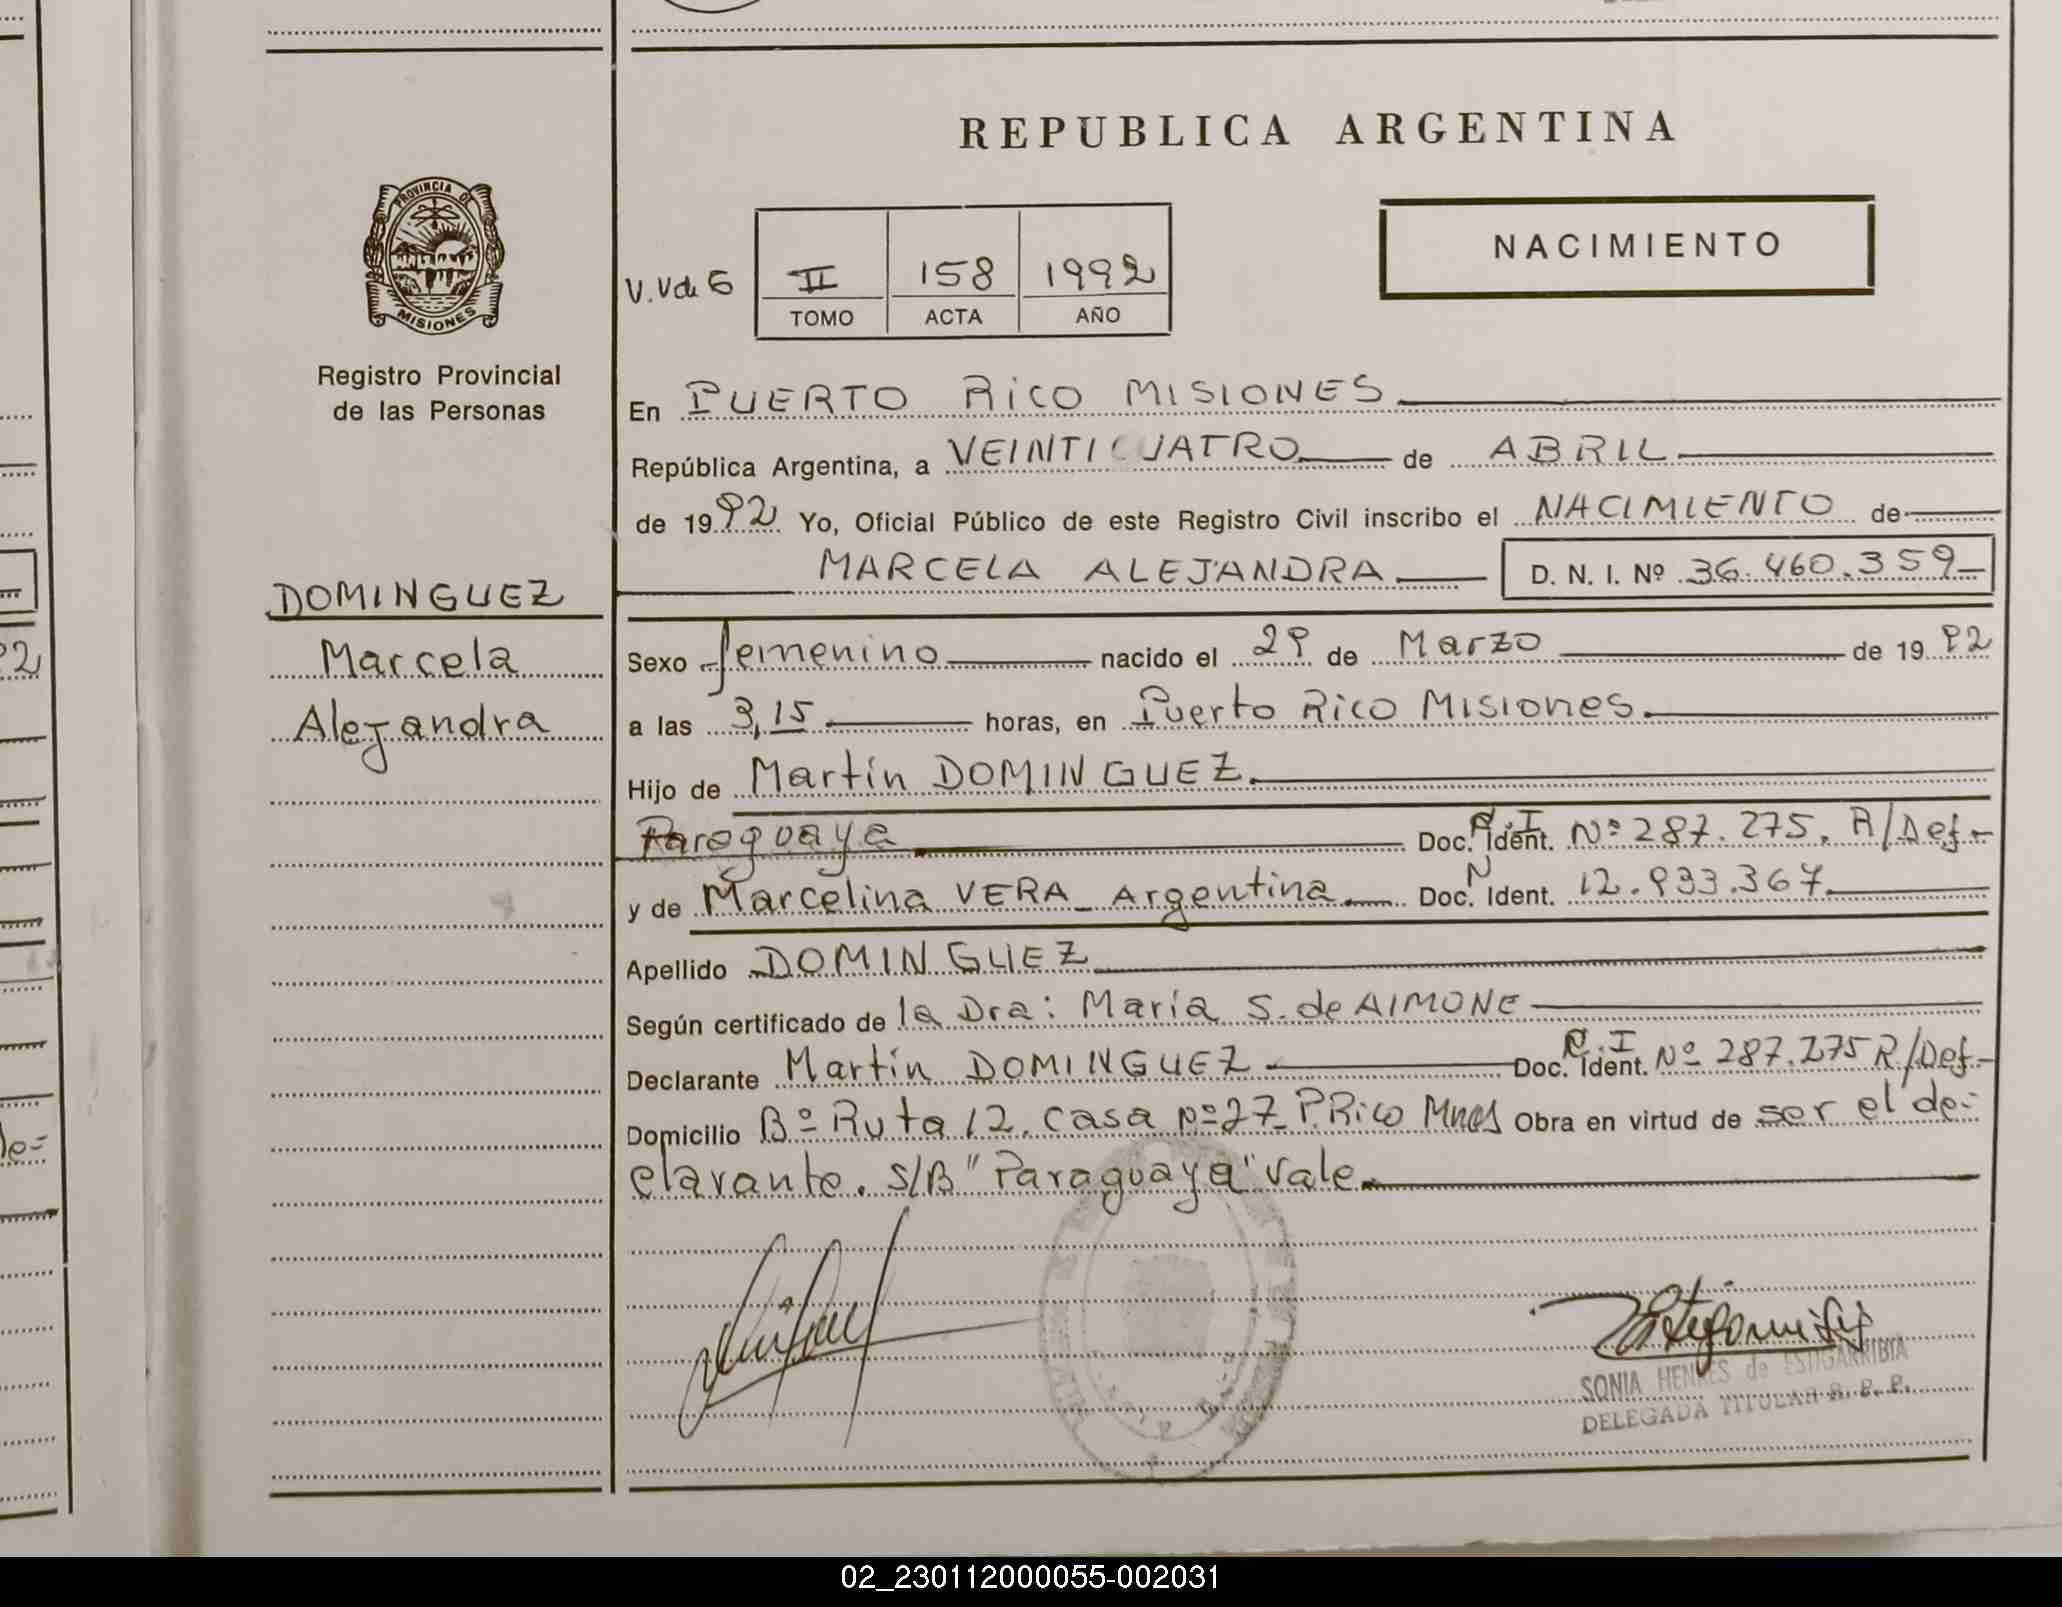 REPUBLICA ARGENTINA
PROVINCIA DE
MISIONES
Registro Provincial
de las Personas
NACIMIENTO
V.Vde 6 II 158 1992
TOMO ACTA AÑO
En PUERTO RICO MISIONES
República Argentina, a VEINTICUATRO de ABRIL
de 1992 Yo, Oficial Público de este Registro Civil inscribo el NACIMIENTO de
MARCELA ALEJANDRA D. N. I. Nº 36.460.359
DOMINGUEZ
Marcela
Alejandra
Sexo femenino nacido el 29 de Marzo de 1992
a las 3,15 horas, en Puerto Rico Misiones.
Hijo de Martín DOMINGUEZ.
Paraguaya Doc. Ident. C.I Nº 287.275. R/Def.-
y de Marcelina VERA_ Argentina Doc. N Ident. 12.933.367
Apellido DOMINGUEZ
Según certificado de la Dra: María S. de AIMONE
Declarante Martín DOMINGUEZ Doc. Ident. C.I Nº 287.275 R/Def.-
Domicilio Bº Ruta 12. Casa nº 27_ P.Rico Mnes Obra en virtud de ser el de-
clarante. S/B "Paraguaya" Vale.
SONIA HENNES de ESTIGARRIBIA
DELEGADA TITULAR R. P. P.
02_230112000055-002031